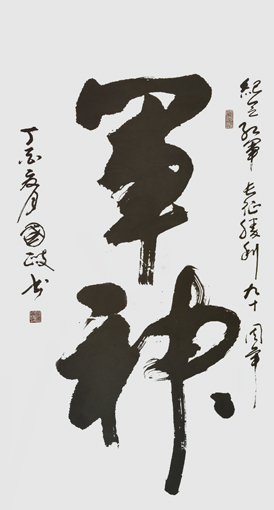 紀念紅軍長征勝利九十周年
軍神
丁亥夏月國政书